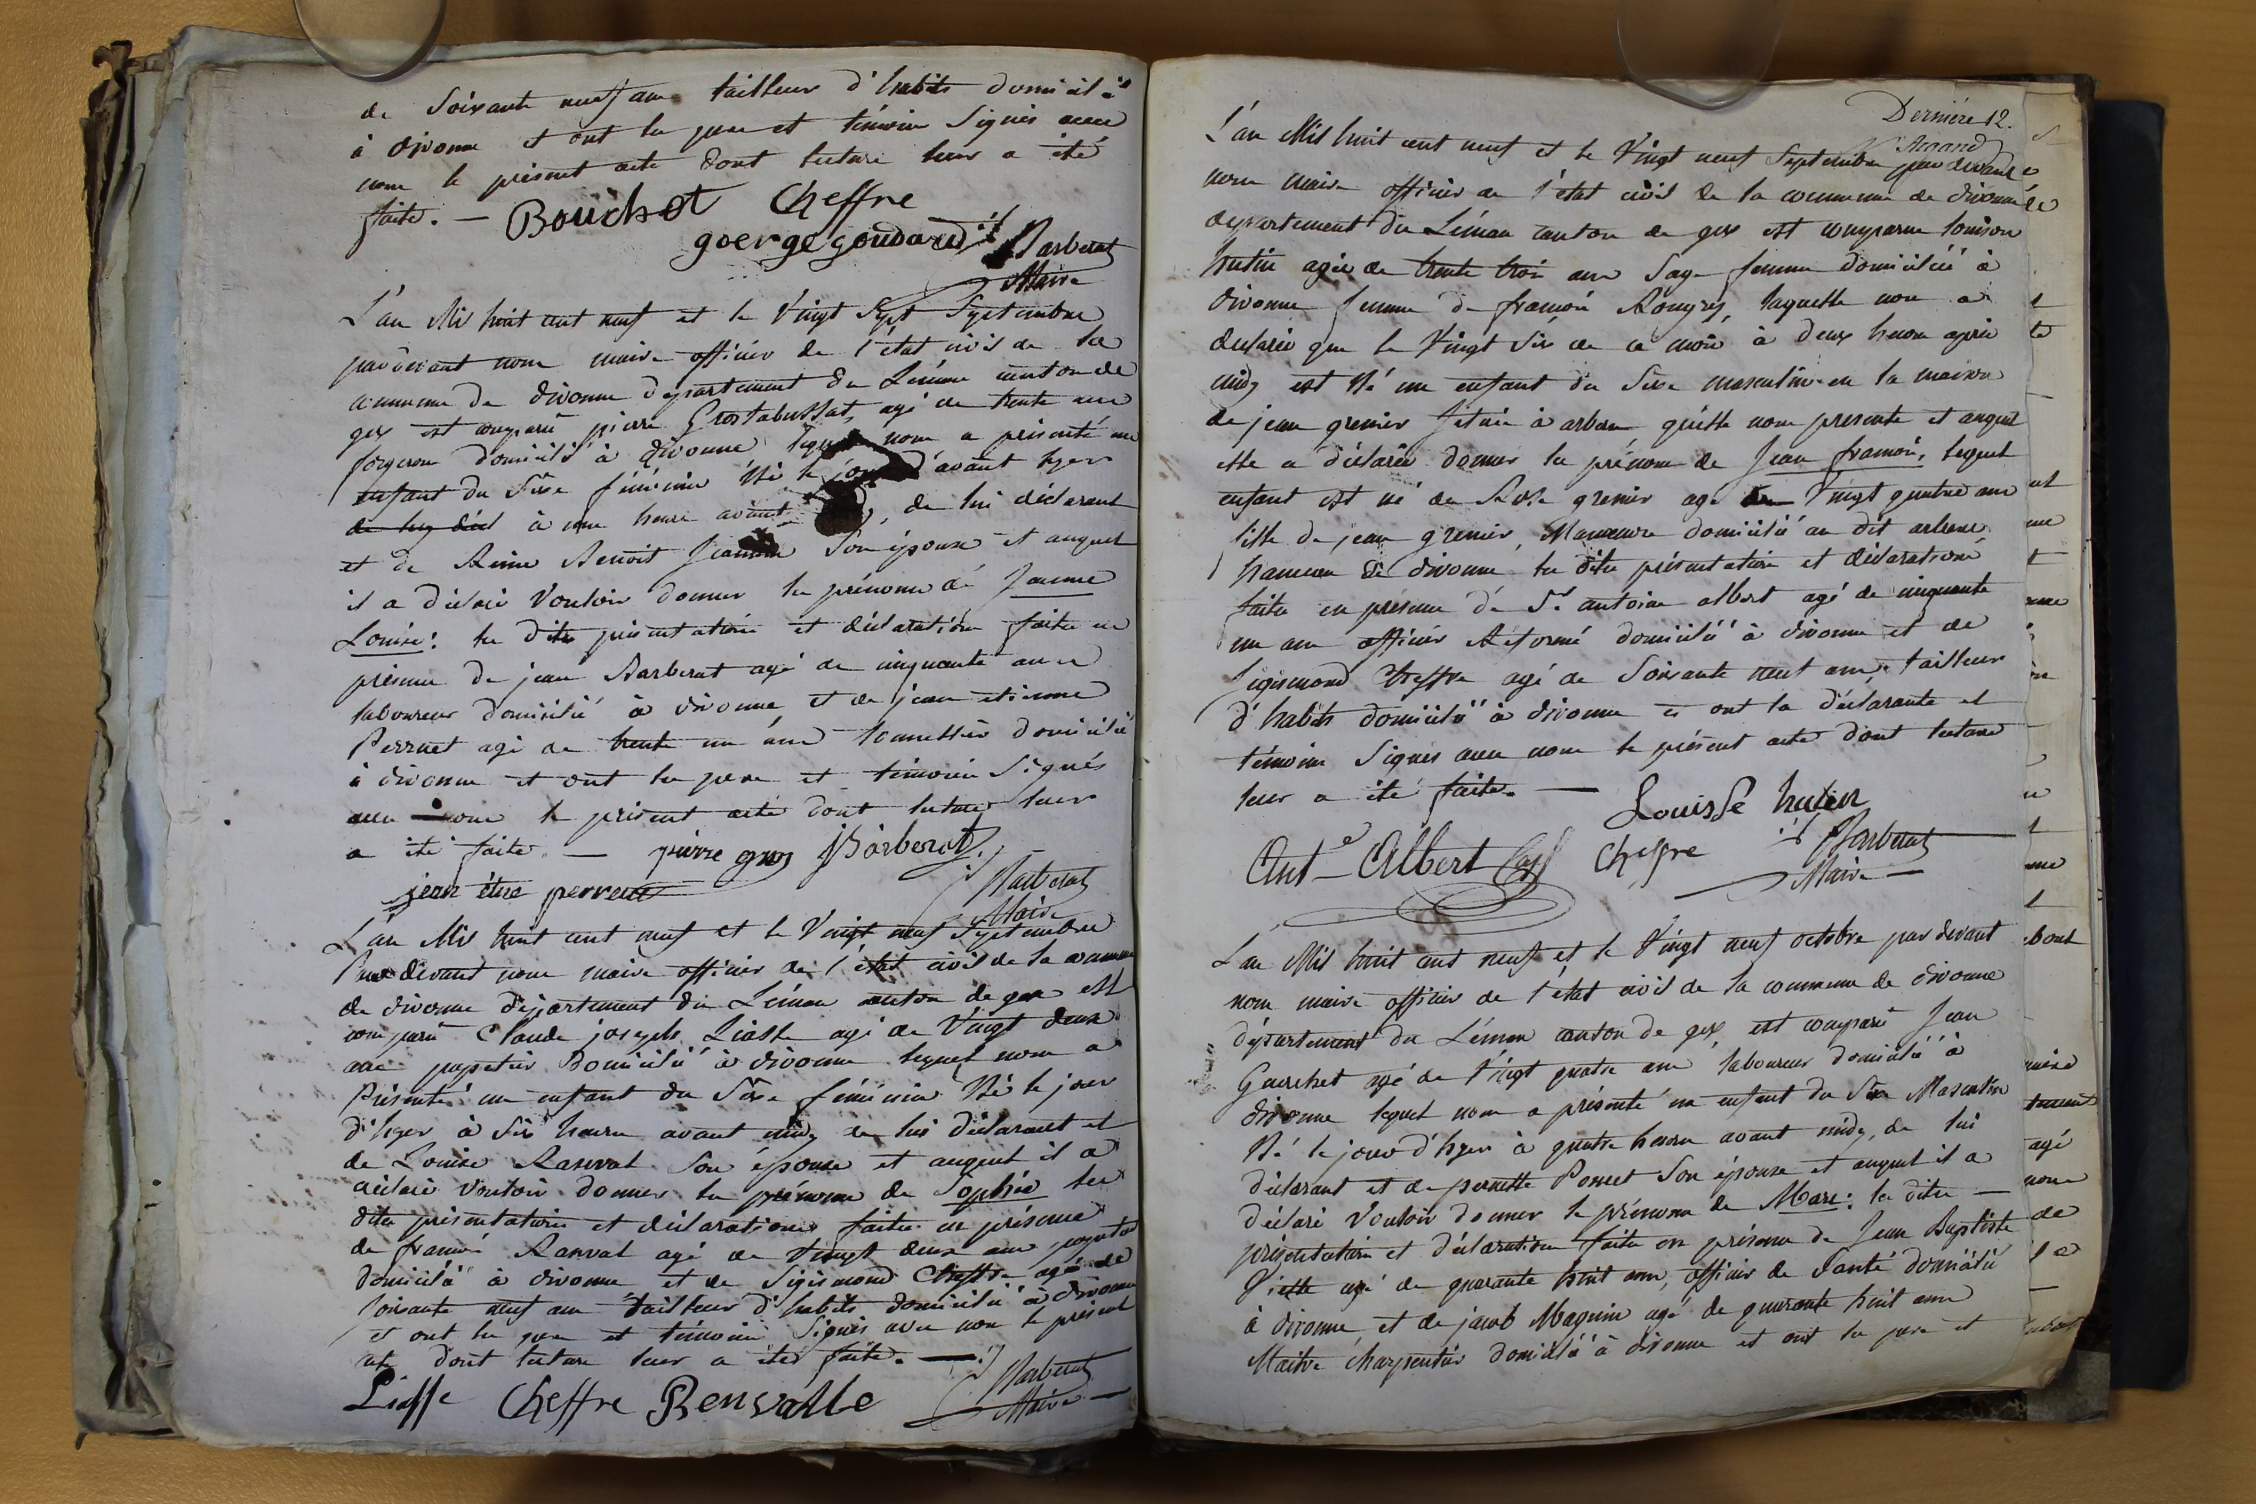 de Soixante neuf ans tailleur d'habits domicilié
à divonne et ont les pere et témoins Signés avec
nous le présent acte dont lecture leur a été
faite. — Bouchot Cheffre
goerge goudard Barberat
Maire
L'an Mil huit cent neuf et le Vingt Sept Septembre
pardevant nous maire officier de l'état civil de la
commune de divonne département du Léman canton de
gex est comparu pierre Grostabussat, agé de trente ans
forgeron domicilié à divonne lequel nous a présenté un
enfant du Sexe féminin Né le jour d'avant hyer
à une heure avant, de lui déclarant
et de Reine Benoit Jeanne Son épouse et auquel
il a déclaré Vouloir donner les prénoms de Jeanne
Louise: les dites présentation et déclaration faites en
présence de jean Barberat agé de cinquante ans
laboureur domicilié à divonne et de jean etienne
Perruet agé de trente un ans domicilié
à divonne et ont les pere et témoins Signés
avec nous le présent acte dont lecture leur
a été faite. — pierre gros JBarberat
jean étne perreut Barberat
Maire
L'an Mil huit cent neuf et le Vingt neuf Septembre
Par devant nous maire officier de l'état civil de la commune
de divonne département du Léman canton de gex est
comparu Claude joseph Liasse agé de Vingt deux
ans papetier Domicilié à divonne lequel nous a
Présenté un enfant du Sexe féminin Né le jour
d'hyer à Six heures avant midy de lui déclarant et
de Louise Ranvat Son épouse et auquel il a
déclaré Vouloir donner le prénom de Sophie les
dites présentation et déclaration faites en présence
de françois Ranvat agé de Vingt deux ans papetier
domicilié à divonne et de Sigismond Cheffre agé de
Soixante neuf ans tailleur d'habits domicilié à divonne
et ont les pere et témoins Signés avec nous le présent
acte dont lecture leur a été faite. —
Barberat
Liasse Cheffre Renvalle Maire
Dernière 12.
L'an Mil huit cent neuf et le Vingt neuf Septembre par devant
nous maire officier de l'état civil de la commune de divonne
département du Léman canton de gex est comparue louison
hutin agée de trente trois ans Sage femme domiciliée à
divonne femme de françois Rougey, laquelle nous a
déclaré que le Vingt Six de ce mois à deux heures après
midy est Né un enfant du Sexe masculin en la maison
de jean grenier Située à arbere qu'elle nous présente et auquel
elle a déclaré donner les prénoms de Jean françois, lequel
enfant est né de Rose grenier agé de Vingt quatre ans
fille de jean grenier, Manoeuvre domicilié au dit arbere
hameau de divonne les dites présentation et déclaration
faites en présence de Sr antoine albert agé de cinquante
un ans officier Réformé domicilié à divonne et de
Sigismond Cheffre agé de Soixante neuf ans tailleur
d'habits domicilié à divonne et ont la déclarante et
témoins Signés avec nous le présent acte dont lecture
leur a été faite. — Louisse hutin
Ant.e Albert Cheffre Barberat
Maire
L'an Mil huit cent neuf et le Vingt neuf octobre par devant
nous maire officier de l'état civil de la commune de divonne
département du Léman canton de gex, est comparu Jean
Guerchet agé de Vingt quatre ans laboureur domicilié à
divonne lequel nous a présenté un enfant du Sexe Masculin
Né le jour d'hyer à quatre heures avant midy, de lui
déclarant et de pernette Poncet Son épouse et auquel il a
déclaré Vouloir donner le prénom de Marc: les dites —
présentation et déclaration faites en présence de Jean Baptiste
Viette agé de quarante huit ans, officier de Santé domicilié
à divonne, et de jacob Magnin agé de quarante huit ans
Maitre charpentier domicilié à divonne et ont les pere et